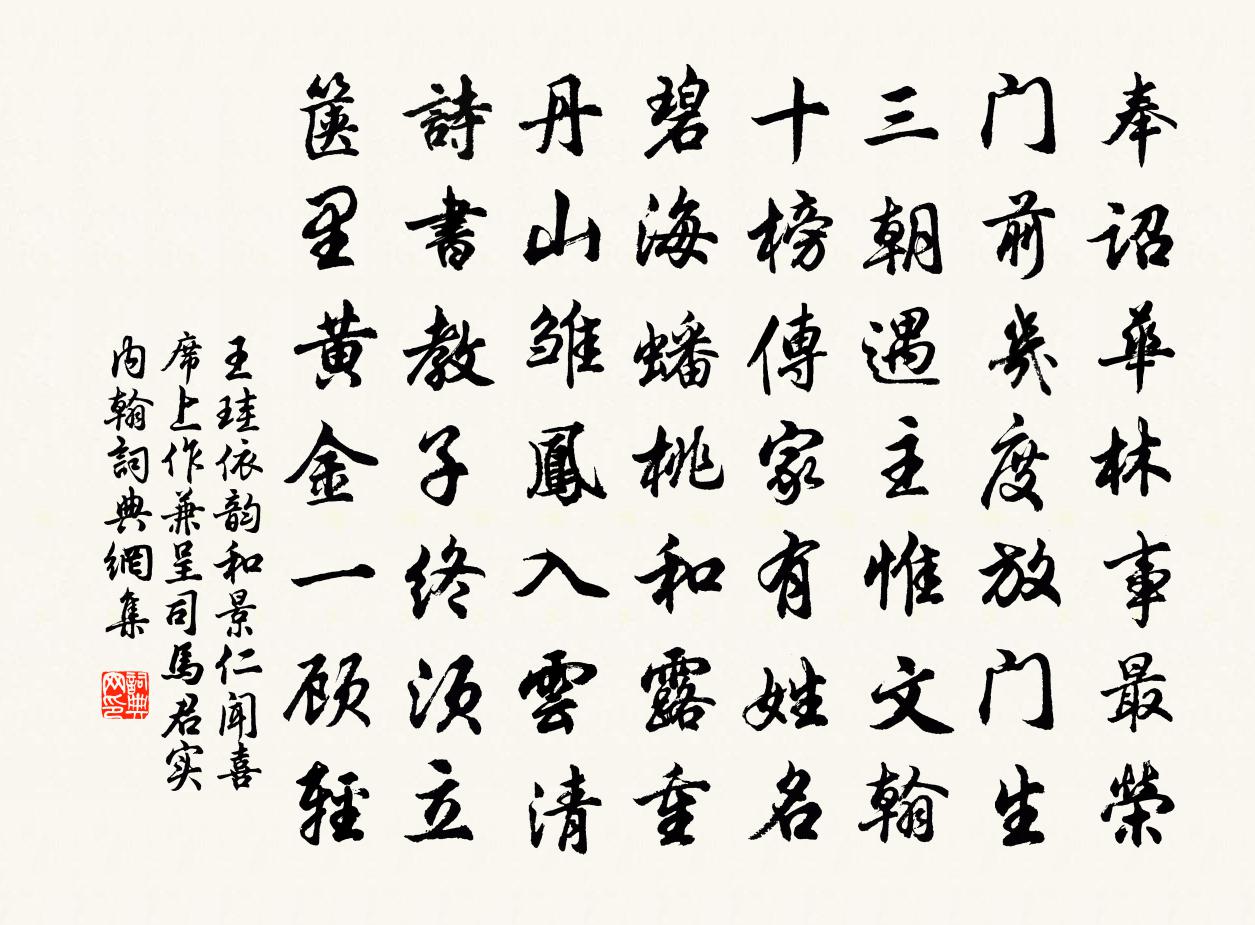 奉诏華林事最榮
门前幾度放门生
三朝遇主惟文翰
十榜傳家有姓名
碧海蟠桃和露重
丹山雏鳳入雲清
詩書教子终须立
箧里黄金一顾輕
王珪依韵和景仁闻喜
席上作兼呈司馬君实
内翰詞典網集
詞典
网印